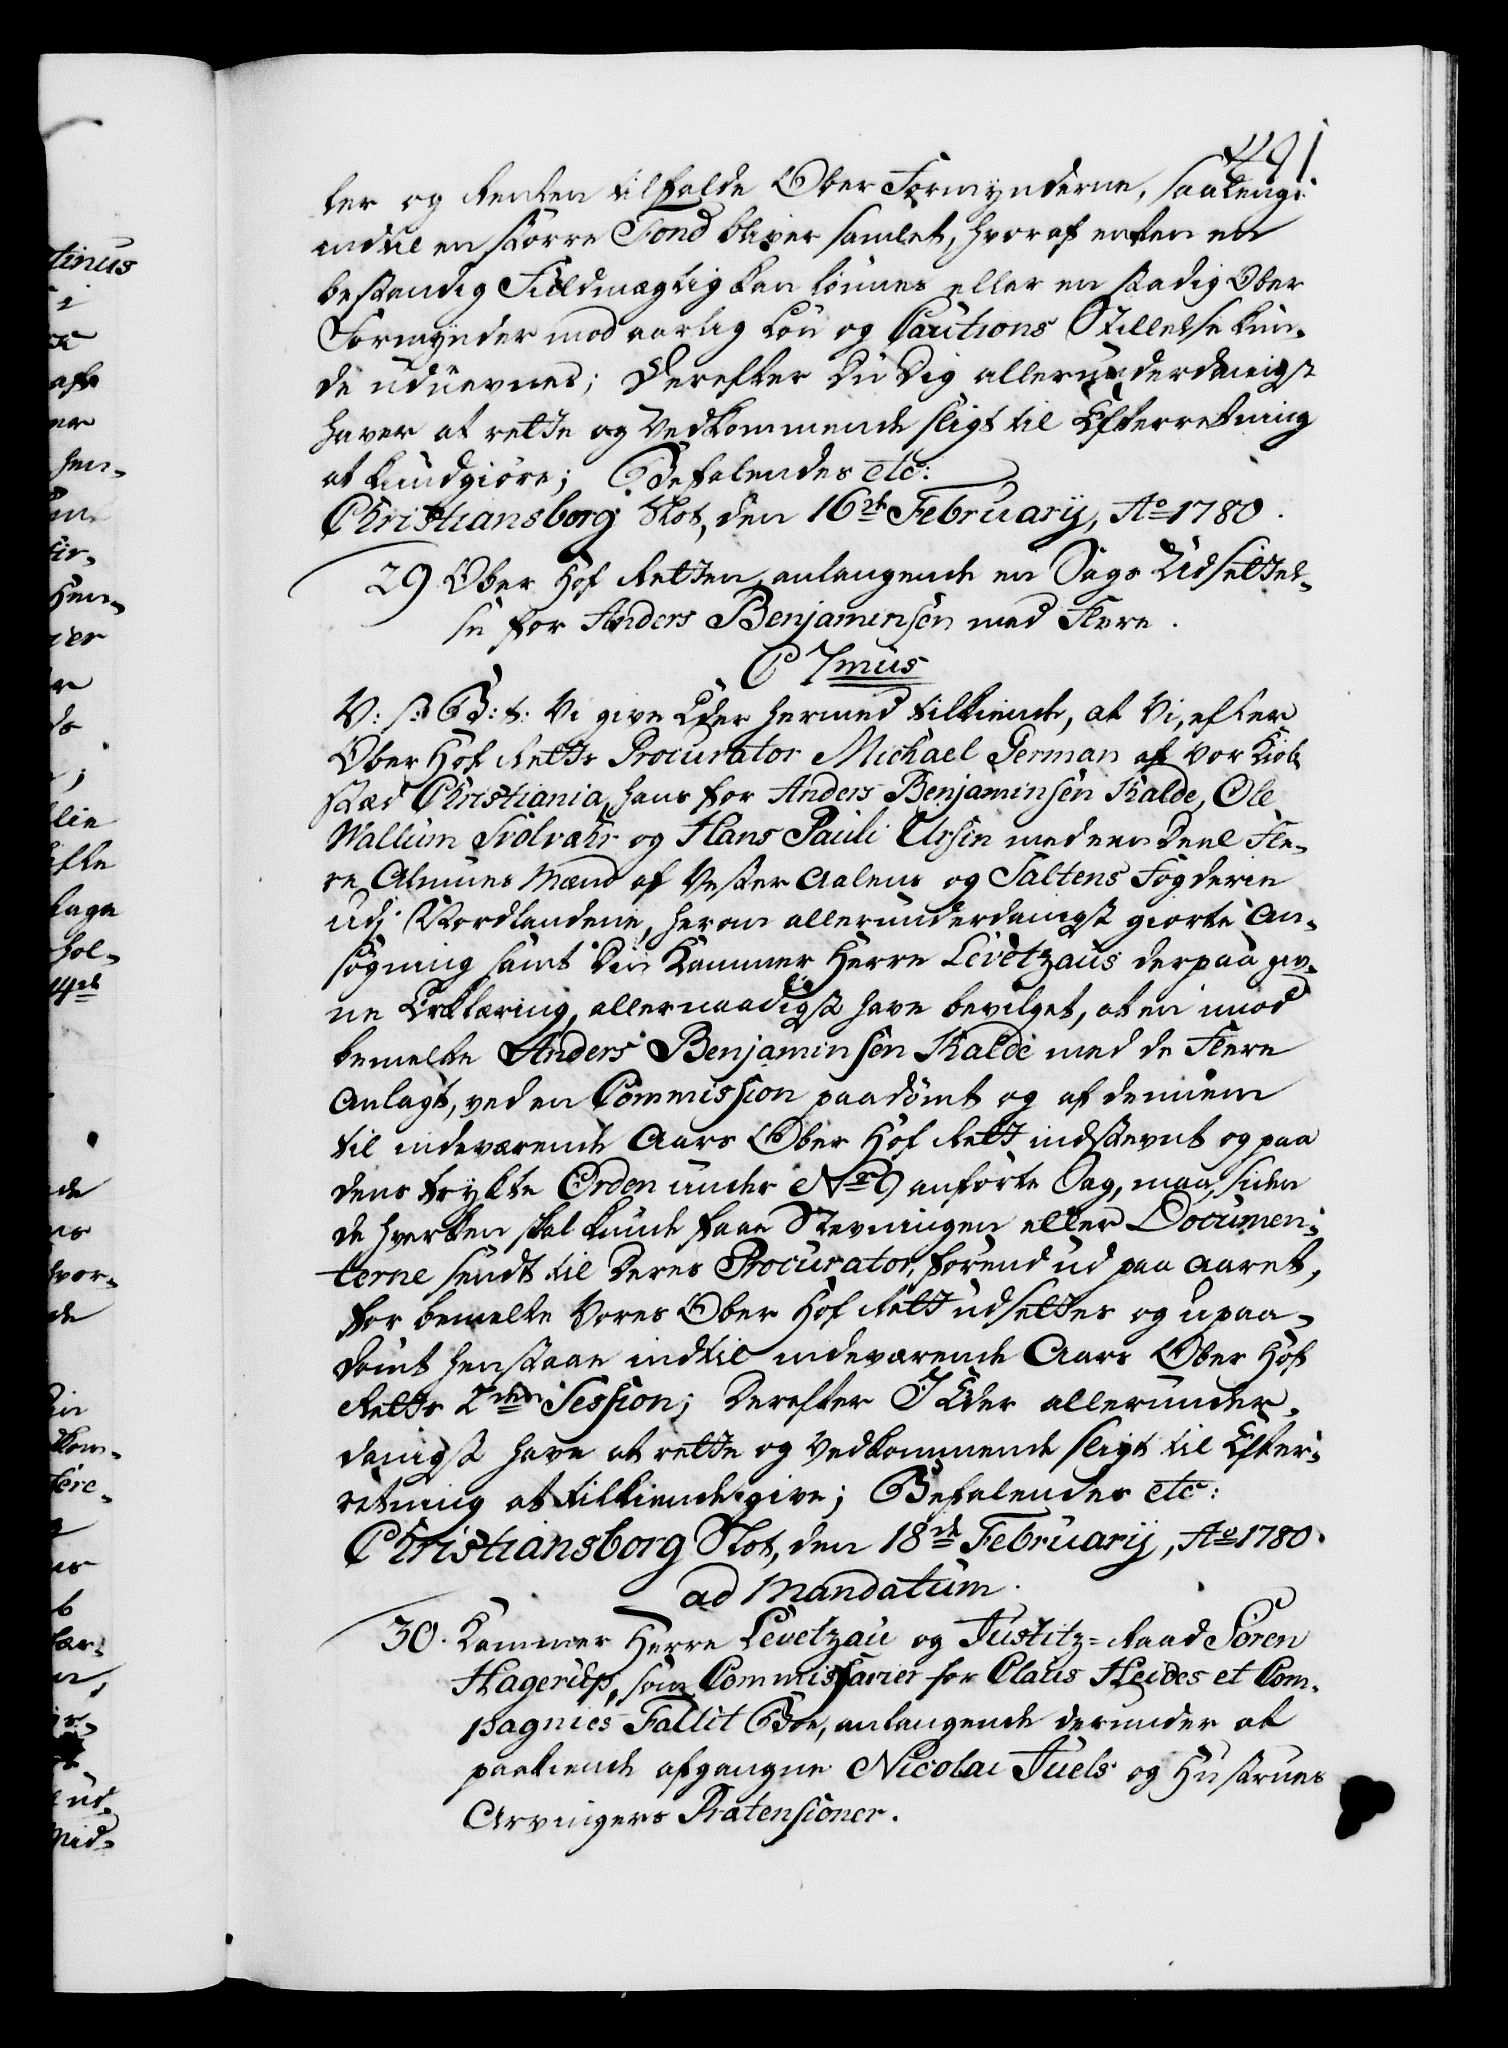 491
ter og Renten tilfalde Ober Formynderne, saalenge
indtil en større Fond bliver samlet, hvoraf enten en
bestandig Fuldmægtig kan lønnes eller en stadig Ober
Formynder mod aarlig Løn og Cautions Stillelse kun-
de udnevnes; Derefter Du Dig allerunderdanigst
haver at rette og Vedkommende sligt til Efterretning
at kundgiøre; Befalendes etc:
Christiansborg Slot, den 16de Februarij, Ao 1780.
29 Ober Hof Retten, anlangende en Sags Udsettel-
se for Anders Benjaminsen med Flere.
C 7mus
V: s: G: t: Vi give Eder hermed tilkiende, at Vi, efter
Ober Hof Retts Procurator Michael German af Vor Kiøb-
stæd Christiania, hans for Anders Benjaminsen Kalde, Ole
Wallum Svolvæhr og Hans Pauli Ursin med een Deel Fle-
re Almues Mænd af Vester Aalens og Saltens Fogderie
udj Nordlandene, herom allerunderdanigst giorte An-
søgning samt Din Kammer Herre Levetzaus derpaa giv-
ne Erklæring, allernaadigst have bevilget, at en imod
bemelte Anders Benjaminsen Kalde med de Flere
Anlagt, ved en Commission paadømt og af dennem
til indeværende Aars Ober Hof Rett indstevnt og paa
dens trykte Orden under No 9 anførte Sag, maa, siden
de hverken skal kunde faae Stevningen eller Documen-
terne sendt til Deres Procurator, forend ud paa Aaret,
for bemelte Vores Ober Hof Rett udsettes og upaa-
dømt henstaae indtil indeværende Aars Ober Hof
Retts 2den Session; Derefter I Eder allerunder-
danigst have at rette og Vedkommende sligt til Efter-
retning at tilkiendegive; Befalendes etc:
Christiansborg Slot, den 18de Februarij, Ao 1780.
ad Mandatum.
30. Kammer Herre Levetzau og Justitz-Raad Søren
Hagerup, som Commissarier for Claus Heides et Com-
pagnies Fallit Boe, anlangende derunder at
paakiende afgangne Nicolai Juels og Hustrues
Arvingers Prætensioner.